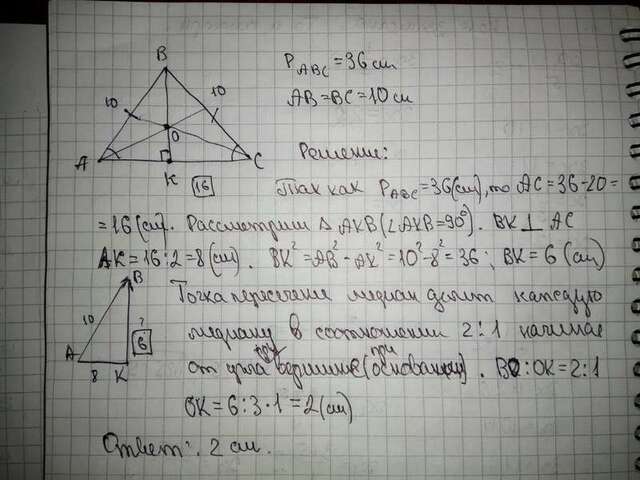 B
P ABC = 36 см
10
10
AB = BC = 10 см
O
A
C
K
16
Решение:
Так как P ABC = 36 (см), то AC = 36 - 20 =
= 16 (см). Рассмотрим Δ AKB (∠AKB = 90°). BK ⊥ AC
AK = 16 : 2 = 8 (см). BK² = AB² - AK² = 10² - 8² = 36; BK = 6 (см)
B
Точка пересечения медиан делит каждую
10
?
6
медиану в соотношении 2:1 начиная
A
8
K
от угла при вершине (при основании). BO : OK = 2:1
OK = 6 : 3 · 1 = 2 (см)
Ответ: 2 см.